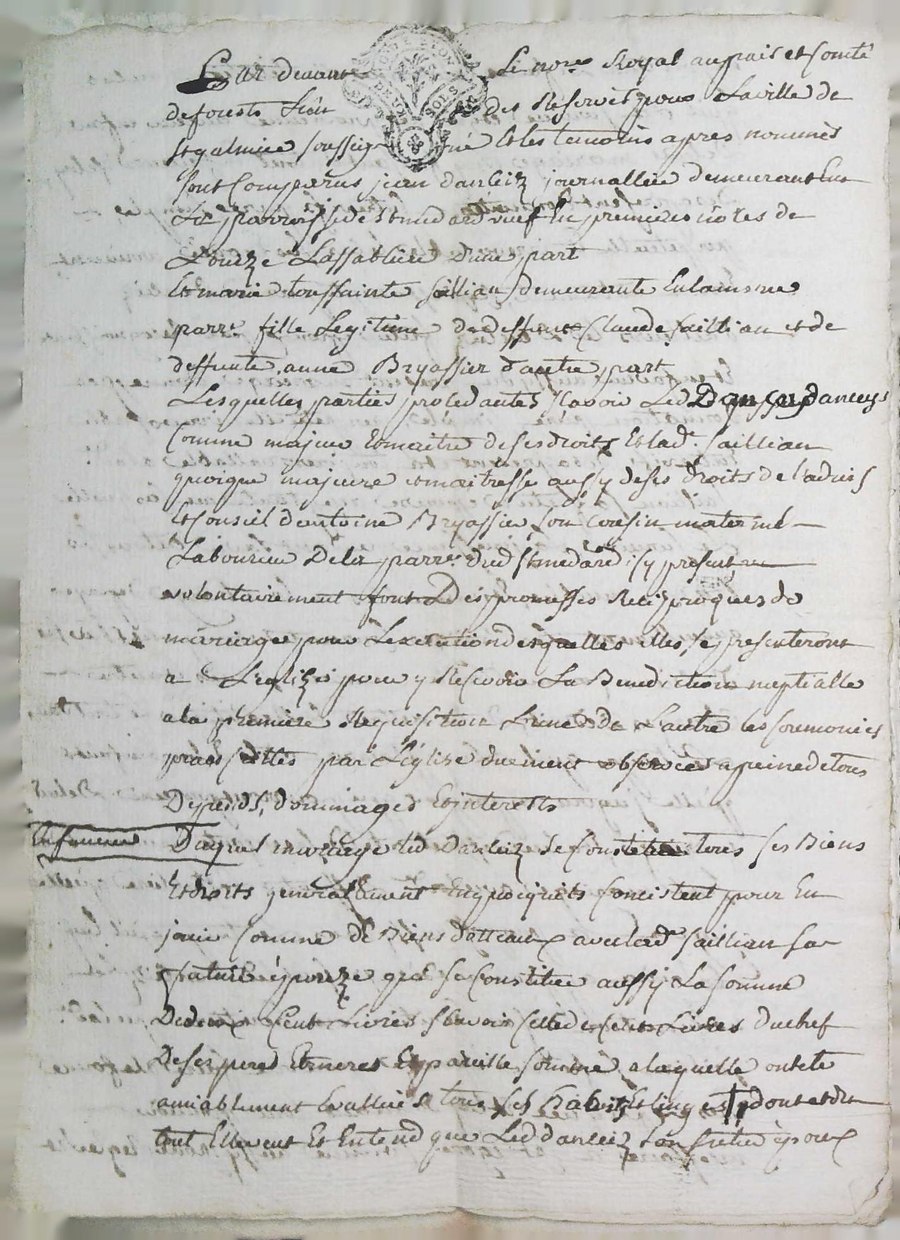 Par devant Le no.re Royal au pais et Comté
de forests Lieu des Reservez pour La ville de
St galmier soussigné Et les temoins apres nommés
sont Comparus jean danleiz journallier demeurant En
La parroisse de St medard veuf En premieres noces de
d'une part
Et marie toussainte saillian demeurante En la mesme
parr.e fille Legitime de deffunt Claude saillian et de
deffunte anne Bryassier d'autre part
Lesquelles parties procedantes scavoir Led
Comme majeur Et maitre de ses droits Et lad.e saillian
quoique majeure et maitresse aussy de ses droits de l'advis
Et Conseil d'antoine Bryassier son cousin maternel
Laboureur De la parr.e dud St medard icy present
volontairement font Des promesses Reciproques de
mariage pour L'execution desquelles elles se presenteront
a L'eglize pour y Recevoir La Benediction nuptialle
a la premiere Requisition L'une de L'autre les seremonies
par L'église duement observées a peine de tous
Depends, dommages Et interetts
Duquel mariage led danleiz se Constitue tous ses Biens
Et droits generallement En quoy quils Concistent pour En
jouir Comme de Biens dotteaux avec lad.e saillian sa
future épouze qui se Constitue aussy La somme
De deux Cent Livres scavoir Celle de Cent Livres du chef
De ses pere Et mere Et pareille somme a laquelle ont été
amiablement Evallués tous ses habits Et linges dont et du
tout Elle veut Et Entend que Led danleiz son futur époux